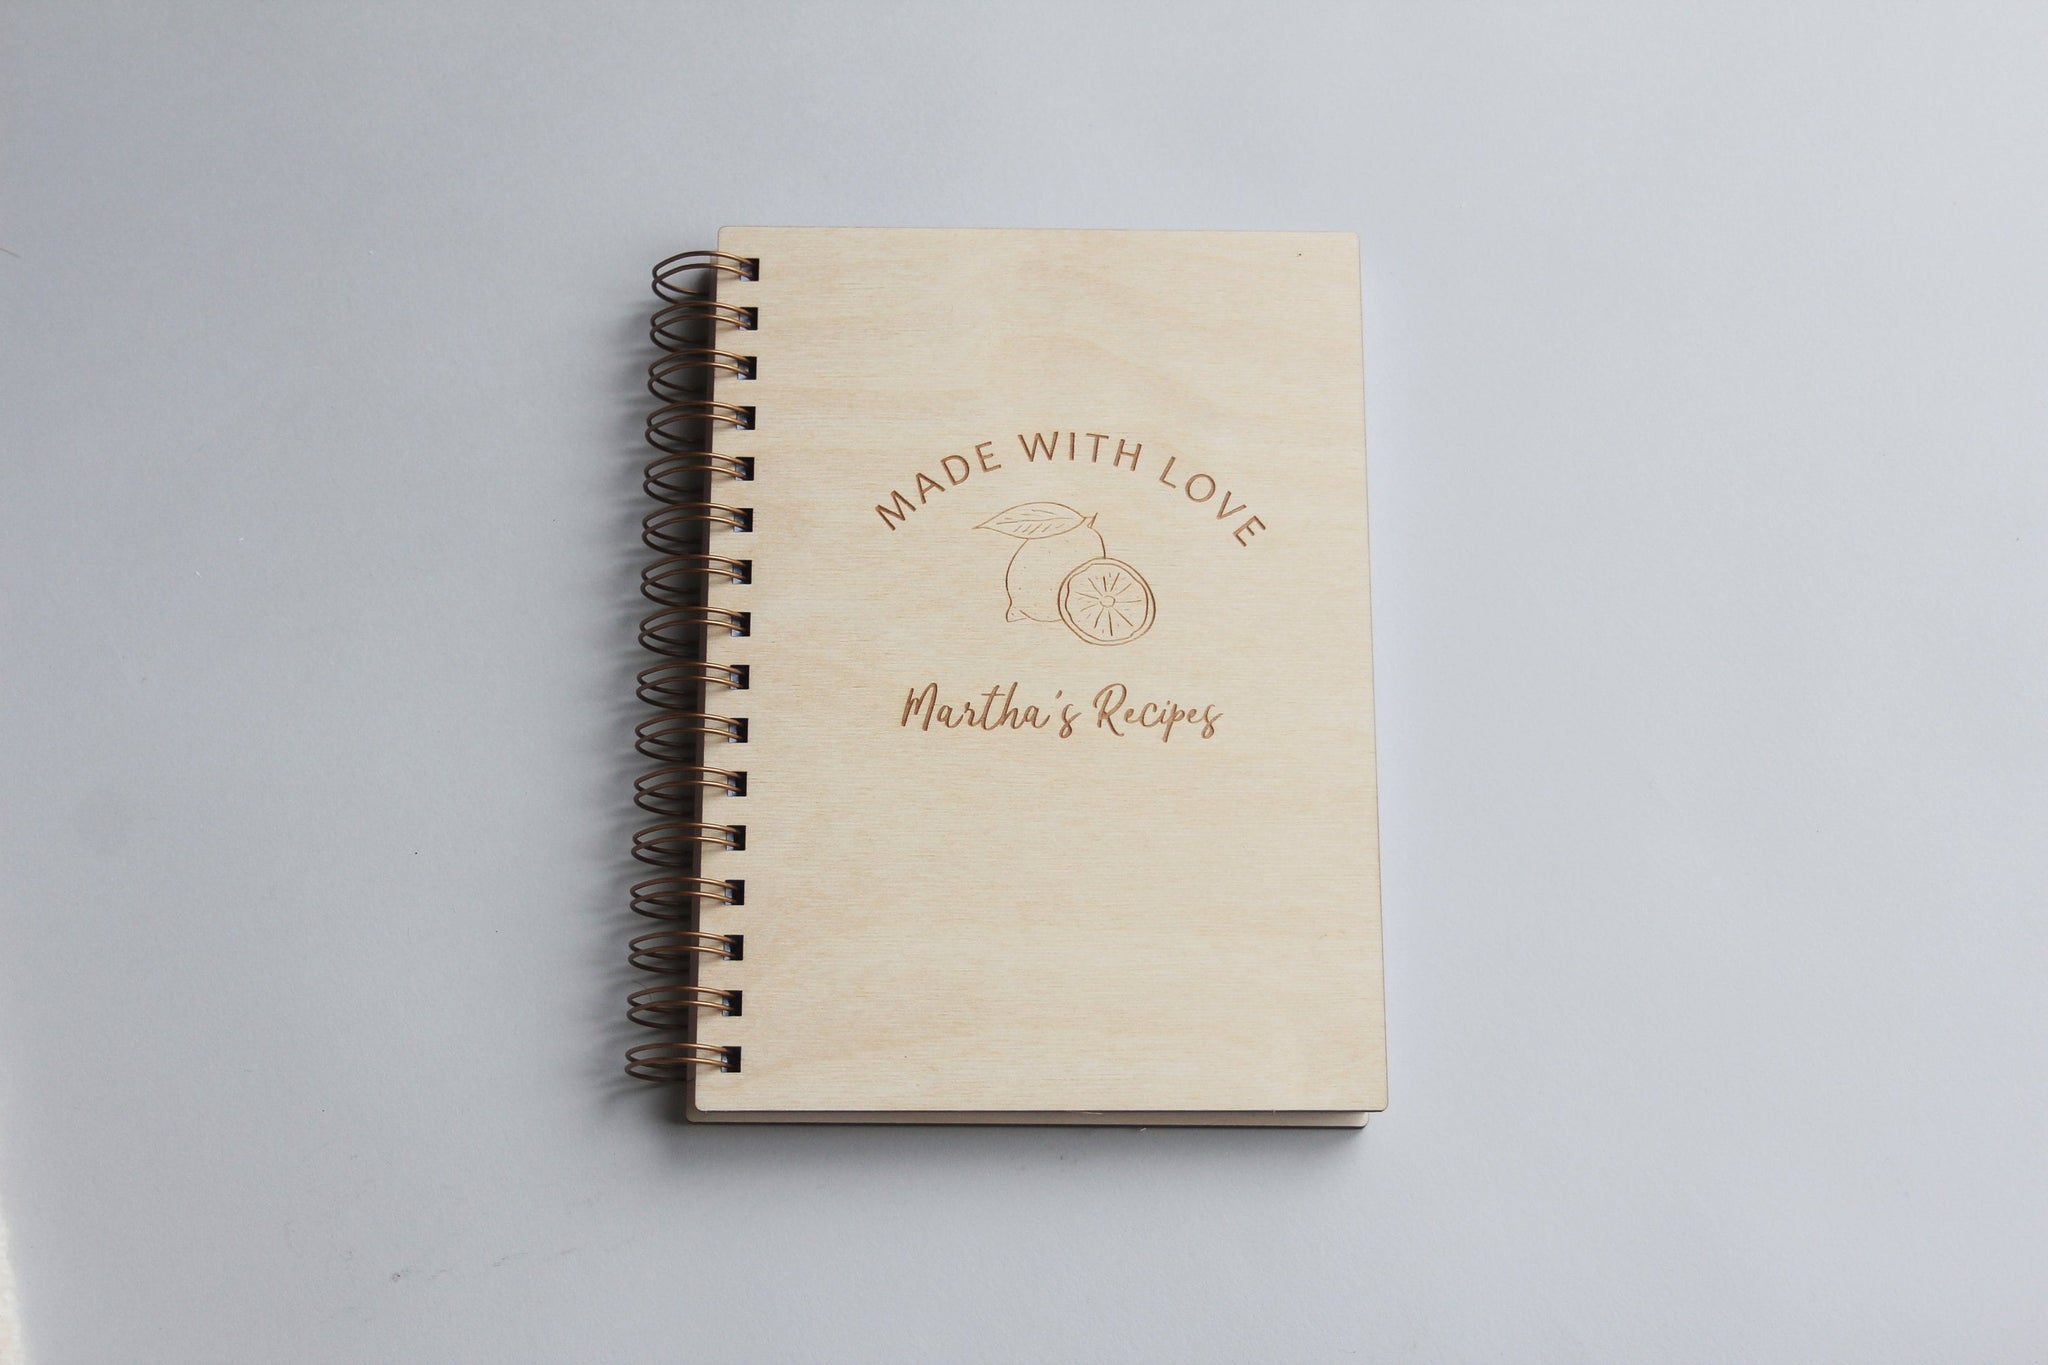 MADE WITH LOVE
Martha's Recipes